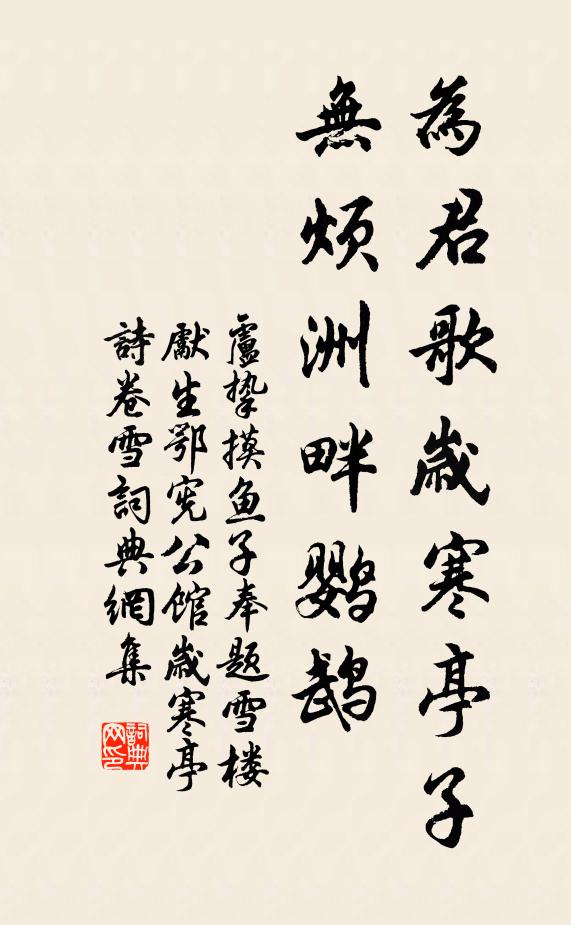 為君歌歲寒亭子
無煩洲畔鹦鵡
盧摯摸鱼子奉題雪楼
獻生鄂宪公館歲寒亭
詩卷雪詞典網集
詞典网印